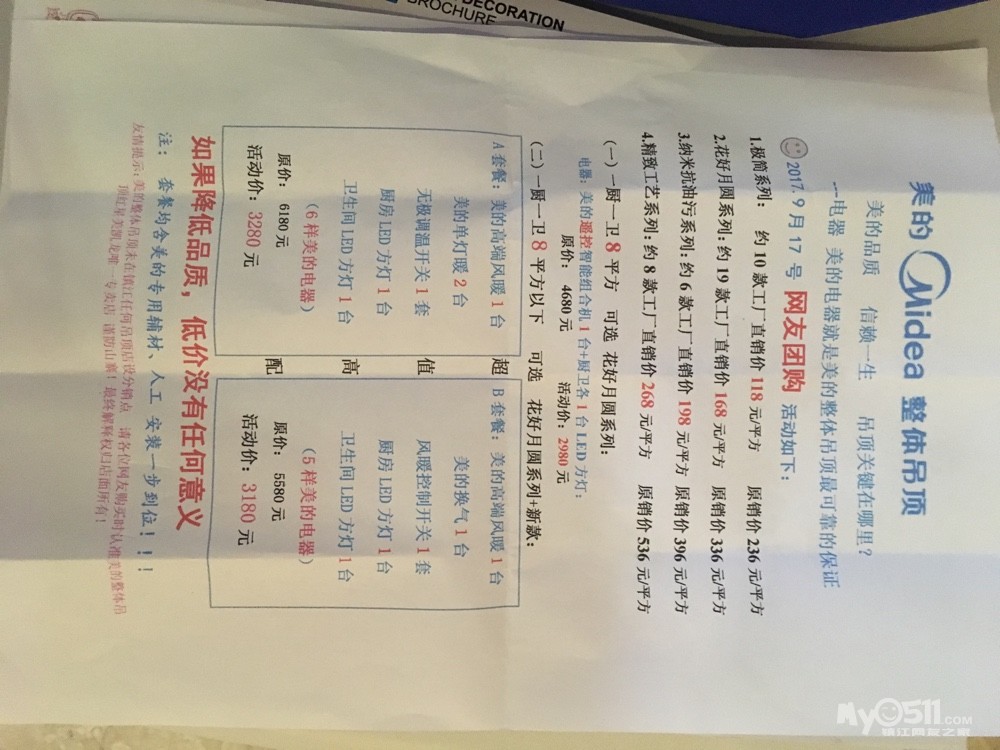 DECORATION
BROCHURE
美的 Midea 整体吊顶
美的品质 信赖一生 吊顶关键在哪里?
---电器 美的电器就是美的整体吊顶最可靠的保证
2017.9月17号 网友团购 活动如下:
1.极简系列: 约10款工厂直销价118元/平方 原销价236元/平方
2.花好月圆系列:约19款工厂直销价168元/平方 原销价336元/平方
3.纳米抗油污系列:约6款工厂直销价198元/平方 原销价396元/平方
4.精致工艺系列:约8款工厂直销价268元/平方 原销价536元/平方
(一)一厨一卫8平方 可选 花好月圆系列:
电器:美的遥控智能组合机1台+厨卫各1台LED方灯:
原价:4680元 活动价:2980元
(二)一厨一卫8平方以下 可选 花好月圆系列+新款:
A套餐:美的高端风暖1台
美的单灯暖2台
无极调温开关1套
厨房LED方灯1台
卫生间LED方灯1台
(6样美的电器)
原价:6180元
活动价:3280元
超值高配
B套餐:美的高端风暖1台
美的换气1台
风暖控制开关1套
厨房LED方灯1台
卫生间LED方灯1台
(5样美的电器)
原价:5580元
活动价:3180元
如果降低品质,低价没有任何意义
注: 套餐均含美的专用辅材、人工 安装一步到位!!!
友情提示:美的整体吊顶未在镇江任何吊顶店设分销点 请各位网友购买时认准美的整体吊
顶红星美凯龙唯一专卖店 谨防山寨!最终解释权归店面所有!
My0511.COM
镇江网友之家